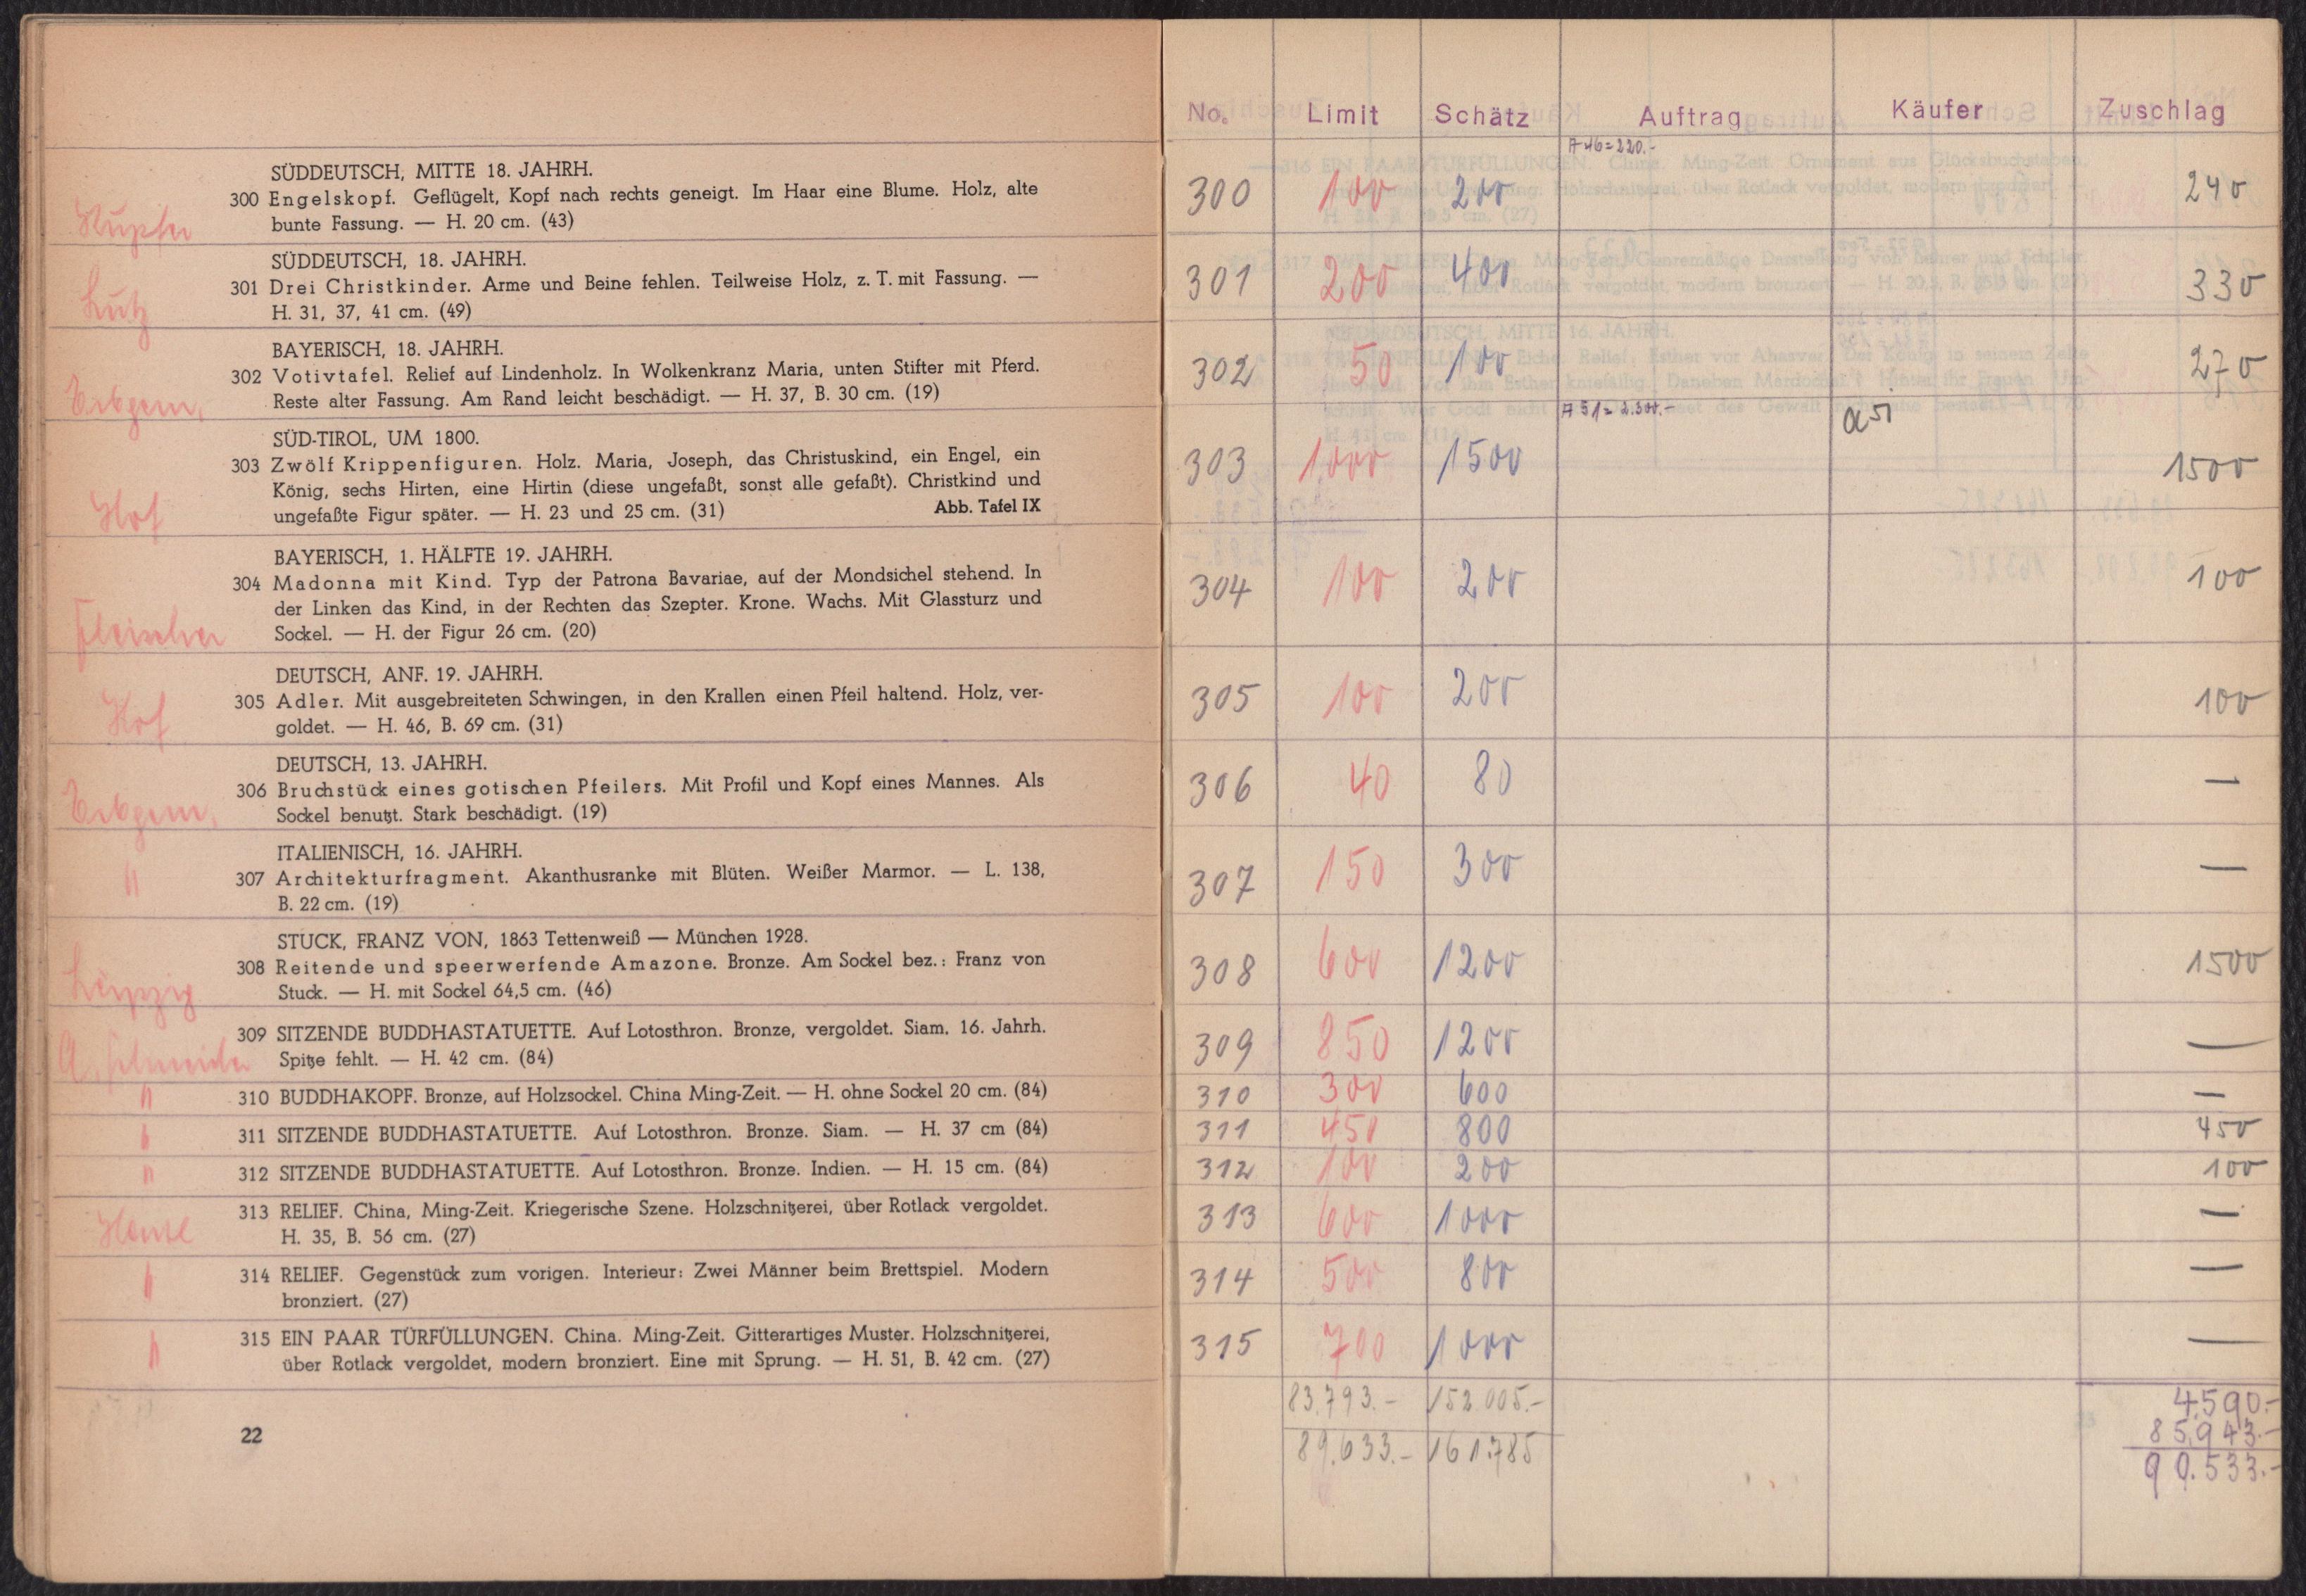 SÜDDEUTSCH, MITTE 18. JAHRH.
300 Engelskopf. Geflügelt, Kopf nach rechts geneigt. Im Haar eine Blume. Holz, alte
bunte Fassung. — H. 20 cm. (43)
SÜDDEUTSCH, 18. JAHRH.
Lutz
301 Drei Christkinder. Arme und Beine fehlen. Teilweise Holz, z. T. mit Fassung. —
H. 31, 37, 41 cm. (49)
BAYERISCH, 18. JAHRH.
Erbgem.
302 Votivtafel. Relief auf Lindenholz. In Wolkenkranz Maria, unten Stifter mit Pferd.
Reste alter Fassung. Am Rand leicht beschädigt. — H. 37, B. 30 cm. (19)
SÜD-TIROL, UM 1800.
303 Zwölf Krippenfiguren. Holz. Maria, Joseph, das Christuskind, ein Engel, ein
König, sechs Hirten, eine Hirtin (diese ungefaßt, sonst alle gefaßt). Christkind und
Hof
ungefaßte Figur später. — H. 23 und 25 cm. (31) Abb. Tafel IX
BAYERISCH, 1. HÄLFTE 19. JAHRH.
304 Madonna mit Kind. Typ der Patrona Bavariae, auf der Mondsichel stehend. In
der Linken das Kind, in der Rechten das Szepter. Krone. Wachs. Mit Glassturz und
Fleischer
Sockel. — H. der Figur 26 cm. (20)
DEUTSCH, ANF. 19. JAHRH.
305 Adler. Mit ausgebreiteten Schwingen, in den Krallen einen Pfeil haltend. Holz, ver-
Hof
goldet. — H. 46, B. 69 cm. (31)
DEUTSCH, 13. JAHRH.
306 Bruchstück eines gotischen Pfeilers. Mit Profil und Kopf eines Mannes. Als
Erbgem.
Sockel benutzt. Stark beschädigt. (19)
ITALIENISCH, 16. JAHRH.
" 307 Architekturfragment. Akanthusranke mit Blüten. Weißer Marmor. — L. 138,
B. 22 cm. (19)
STUCK, FRANZ VON, 1863 Tettenweiß — München 1928.
308 Reitende und speerwerfende Amazone. Bronze. Am Sockel bez.: Franz von
Leipzig
Stuck. — H. mit Sockel 64,5 cm. (46)
309 SITZENDE BUDDHASTATUETTE. Auf Lotosthron. Bronze, vergoldet. Siam. 16. Jahrh.
Spitze fehlt. — H. 42 cm. (84)
" 310 BUDDHAKOPF. Bronze, auf Holzsockel. China Ming-Zeit. — H. ohne Sockel 20 cm. (84)
" 311 SITZENDE BUDDHASTATUETTE. Auf Lotosthron. Bronze. Siam. — H. 37 cm (84)
" 312 SITZENDE BUDDHASTATUETTE. Auf Lotosthron. Bronze. Indien. — H. 15 cm. (84)
313 RELIEF. China, Ming-Zeit. Kriegerische Szene. Holzschnitzerei, über Rotlack vergoldet.
H. 35, B. 56 cm. (27)
" 314 RELIEF. Gegenstück zum vorigen. Interieur: Zwei Männer beim Brettspiel. Modern
bronziert. (27)
" 315 EIN PAAR TÜRFÜLLUNGEN. China. Ming-Zeit. Gitterartiges Muster. Holzschnitzerei,
über Rotlack vergoldet, modern bronziert. Eine mit Sprung. — H. 51, B. 42 cm. (27)
22
No. Limit Schätz Auftrag Käufer Zuschlag
A 46 = 220.-
300 100 200 240
301 200 400 330
302 50 100 270
A 51 = 2.300.- a 51
303 1000 1500 1500
304 100 200 100
305 100 200 100
306 40 80 —
307 150 300 —
308 600 1200 1500
309 850 1200 —
310 300 600 —
311 450 800 450
312 100 200 100
313 600 1000 —
314 500 800 —
315 700 1000 —
83.793.- 152.005.- 4.590.-
85.943.-
89.633.- 161.785 90.533.-